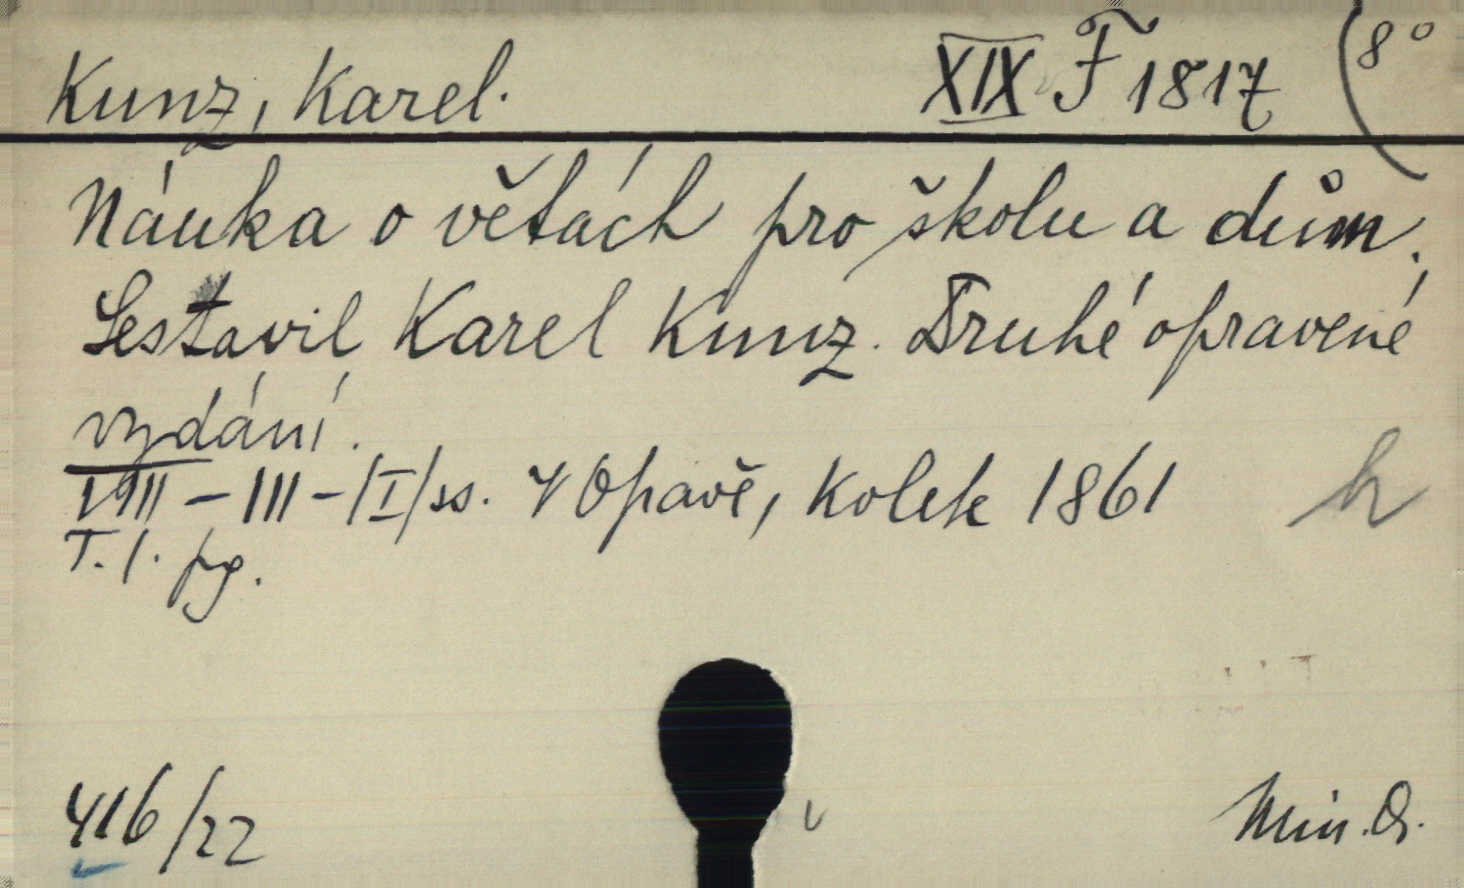 Kunz, Karel. XIX F 1817 (8°
Náuka o větách pro školu a dům.
Sestavil Karel Kunz. Druhé opravené
vydání.
VIII – 111 – /I/ ss. V Opavě, Kolek 1861
T. l. pg.
416/22 Min. O.